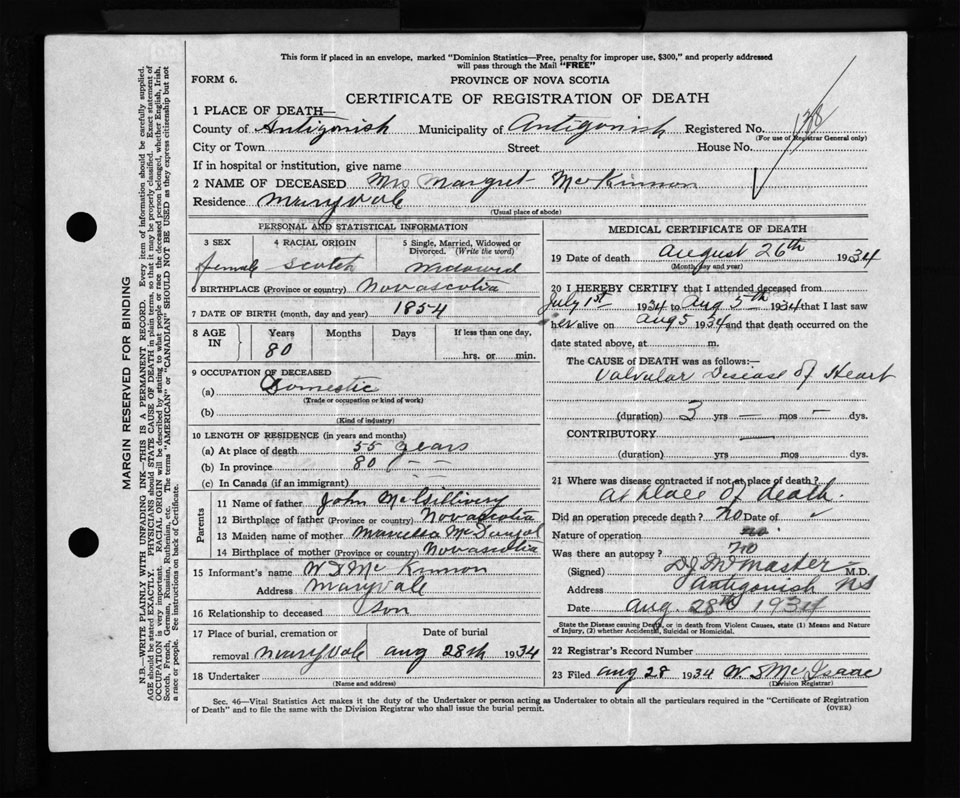 This form if placed in an envelope, marked "Dominion Statistics—Free, penalty for improper use, $300," and properly addressed
will pass through the Mail "FREE"
FORM 6.
PROVINCE OF NOVA SCOTIA
CERTIFICATE OF REGISTRATION OF DEATH
1 PLACE OF DEATH—
County of Antigonish Municipality of Antigonish Registered No. 128
(For use of Registrar General only)
City or Town Street House No.
If in hospital or institution, give name
2 NAME OF DECEASED Mrs Margret McKinnon
Residence Maryvale
(Usual place of abode)
PERSONAL AND STATISTICAL INFORMATION
3 SEX 4 RACIAL ORIGIN 5 Single, Married, Widowed or
Divorced. (Write the word)
female Scotch Widowed
6 BIRTHPLACE (Province or country) Novascotia
7 DATE OF BIRTH (month, day and year) 1854
8 AGE IN Years Months Days If less than one day,
80 hrs. or min.
9 OCCUPATION OF DECEASED
(a) Domestic
(Trade or occupation or kind of work)
(b)
(Kind of industry)
10 LENGTH OF RESIDENCE (in years and months)
(a) At place of death 55 years
(b) In province 80 — —
(c) In Canada (if an immigrant)
Parents
11 Name of father John McGillivery
12 Birthplace of father (Province or country) Novascotia
13 Maiden name of mother McDougal
14 Birthplace of mother (Province or country) Novascotia
15 Informant's name W S Mc Kinnon
Address Maryvale
16 Relationship to deceased Son
17 Place of burial, cremation or Date of burial
removal Maryvale Aug 28th 1934
18 Undertaker
(Name and address)
MEDICAL CERTIFICATE OF DEATH
19 Date of death August 26th 1934
(Month, day and year)
20 I HEREBY CERTIFY that I attended deceased from
July 1st 1934 to Aug 5th 1934 that I last saw
her alive on Aug 5 1934 and that death occurred on the
date stated above, at m.
The CAUSE OF DEATH was as follows:—
Valvular Disease of Heart
(duration) 3 yrs — mos — dys.
CONTRIBUTORY —
(duration) yrs. mos. dys.
21 Where was disease contracted if not at place of death?
at place of death.
Did an operation precede death? no Date of
Nature of operation no
Was there an autopsy? no
(Signed) McMaster M.D.
Address Antigonish NS
Date Aug. 28th 1934
State the Disease causing Death, or in death from Violent Causes, state (1) Means and Nature
of Injury, (2) whether Accidental, Suicidal or Homicidal.
22 Registrar's Record Number
23 Filed Aug 28 1934 W S McIsaac
(Division Registrar)
Sec. 46—Vital Statistics Act makes it the duty of the Undertaker or person acting as Undertaker to obtain all the particulars required in the "Certificate of Registration
of Death" and to file the same with the Division Registrar who shall issue the burial permit.
(OVER)
MARGIN RESERVED FOR BINDING
N.B.—WRITE PLAINLY WITH UNFADING INK—THIS IS A PERMANENT RECORD. Every item of information should be carefully supplied.
AGE should be stated EXACTLY. PHYSICIANS should STATE CAUSE OF DEATH in plain terms, so that it may be properly classified. Exact statement of
OCCUPATION is very important. RACIAL ORIGIN will be described by stating to what people or race the deceased person belonged, whether English, Irish,
Scotch, French, German, Russian, Ruthenian, etc. The terms "AMERICAN" or "CANADIAN" SHOULD NOT BE USED as they express citizenship but not
a race or people. See instructions on back of Certificate.